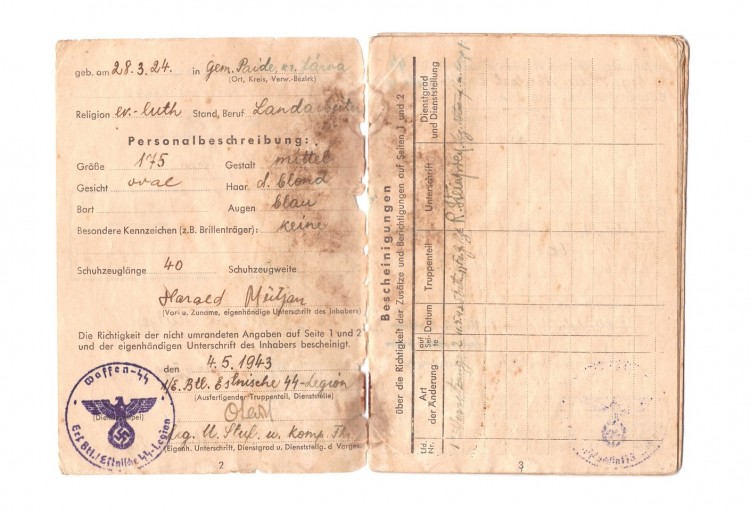 geb. am 28.3.24. in Gem. Paide, Kr. Järva
(Ort, Kreis, Verw.-Bezirk)
Religion ev.-luth Stand, Beruf Landarbeiter
Personalbeschreibung:
Größe 175 Gestalt mittel
Gesicht oval Haar d. blond
Bart Augen blau
Besondere Kennzeichen (z.B. Brillenträger): keine
Schuhzeuglänge 40 Schuhzeugweite
Harald
(Vor- u. Zuname, eigenhändige Unterschrift des Inhabers)
Die Richtigkeit der nicht umrandeten Angaben auf Seite 1 und 2
und der eigenhändigen Unterschrift des Inhabers bescheinigt.
den 4.5.1943
Btl. Estnische SS-Legion
(Ausfertigender Truppenteil, Dienststelle)
u. Komp.
(Eigenh. Unterschrift, Dienstgrad u. Dienststellg. d. Vorges
Waffen-SS
Ers Btl./Estnische SS-Legion
2
Bescheinigungen
über die Richtigkeit der Zusätze und Berichtigungen auf Seiten 1 und 2
Lfd. Nr.
Art der Änderung
auf Seite
Datum
Truppenteil
Unterschrift
Dienstgrad und Dienststellung
1
3